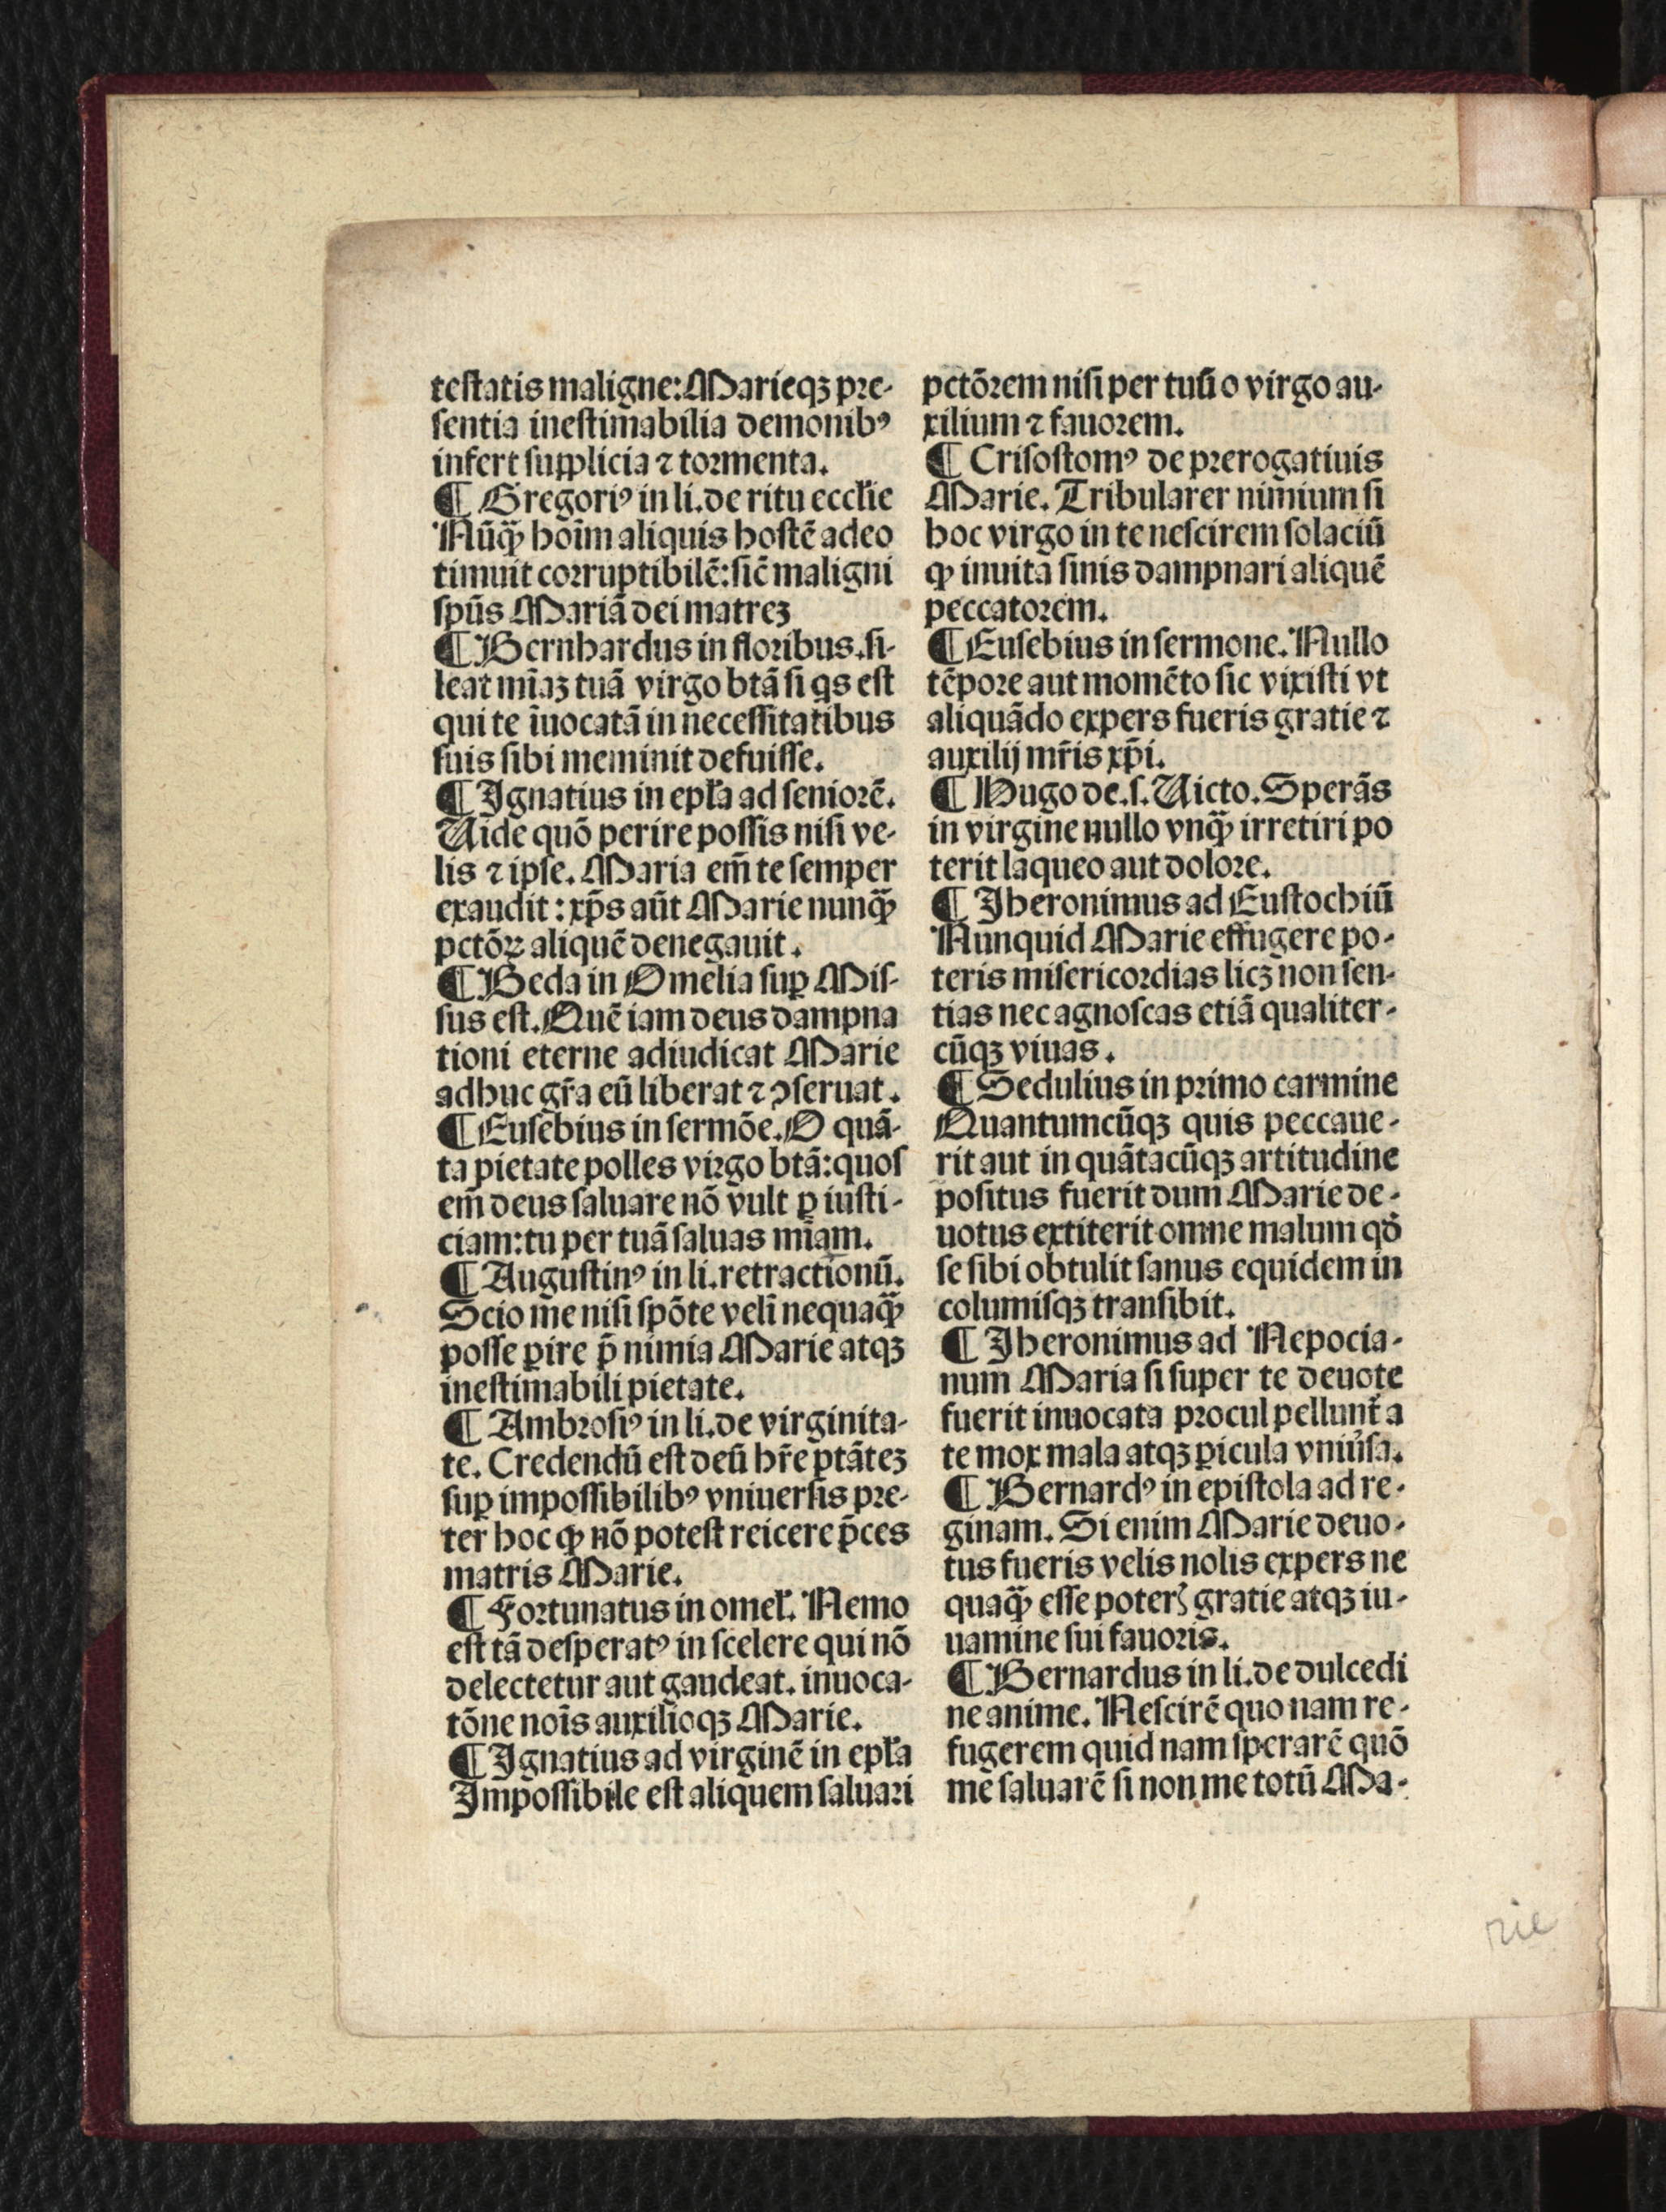 teſtatis maligne: Marieqꝫ pre-
ſentia ineſtimabilia demonibꝰ
infert ſupplicia ⁊ tormenta.
¶ Gregoriꝰ in li. de ritu eccłie
Nūqȝ̄ hoīm aliquis hoſtē adeo
timuit corruptibilē: ſic̄ maligni
ſpūs Mariā dei matreꝫ
¶ Bernhardus in floribus. ſi-
leat mīaꝫ tuā virgo btā ſi qs eſt
qui te īuocatā in neceſſitatibus
ſuis ſibi meminit defuiſſe.
¶ Ignatius in epła ad ſeniorē.
Uide quō perire poſſis niſi ve-
lis ⁊ ipſe. Maria em̄ te ſemper
exaudit: xp̄s aūt Marie nunqȝ̄
pctōꝝ aliquē denegauit.
¶ Beda in Omelia ſuꝑ Miſ-
ſus eſt. Quē iam deus dampna
tioni eterne adiudicat Marie
adhuc gr̄a eū liberat ⁊ ꝯſeruat.
¶ Euſebius in ſermōe. O quā-
ta pietate polles virgo btā: quoſ
em̄ deus ſaluare nō vult ꝑ iuſti-
ciam: tu per tuā ſaluas mīam.
¶ Auguſtinꝰ in li. retractionū.
Scio me niſi ſpōte velī nequaqȝ̄
poſſe ꝑire p̄ nimia Marie atqꝫ
ineſtimabili pietate.
¶ Ambroſiꝰ in li. de virginita-
te. Credendū eſt deū hr̄e ptāteꝫ
ſuꝑ impoſſibilibꝰ vniuerſis pre-
ter hoc ꝙ nō poteſt reicere p̄ces
matris Marie.
¶ Fortunatus in omeł. Nemo
eſt tā deſperatꝰ in ſcelere qui nō
delectetur aut gaudeat. inuoca-
tōne noīs auxilioqꝫ Marie.
¶ Ignatius ad virginē in epła
Impoſſibile eſt aliquem ſaluari
pctōrem niſi per tuū o virgo au-
xilium ⁊ fauorem.
¶ Criſoſtomꝰ de prerogatiuis
Marie. Tribularer nimium ſi
hoc virgo in te neſcirem ſolaciū
ꝙ inuita ſinis dampnari aliquē
peccatorem.
¶ Euſebius in ſermone. Nullo
tēpore aut momēto ſic vixiſti vt
aliquādo expers fueris gratie ⁊
auxilij mr̄is xp̄i.
¶ Hugo de. ſ. Uicto. Sperās
in virgine nullo vnqȝ̄ irretiri po
terit laqueo aut dolore.
¶ Iheronimus ad Euſtochiū
Nunquid Marie effugere po-
teris miſericordias licꝫ non ſen-
tias nec agnoſcas etiā qualiter-
cūqꝫ viuas.
¶ Sedulius in primo carmine
Quantumcūqꝫ quis peccaue-
rit aut in quātacūqꝫ artitudine
poſitus fuerit dum Marie de-
uotus extiterit omne malum qď
ſe ſibi obtulit ſanus equidem in
columiſqꝫ tranſibit.
¶ Iheronimus ad Nepocia-
num Maria ſi ſuper te deuote
fuerit inuocata procul pellunt̃ a
te mox mala atqꝫ ꝑicula vniu̓ſa.
¶ Bernardꝰ in epiſtola ad re-
ginam. Si enim Marie deuo-
tus fueris velis nolis expers ne
quaqȝ̄ eſſe poterꝭ gratie atqꝫ iu-
uamine ſui fauoris.
¶ Bernardus in li. de dulcedi
ne anime. Neſcirē quo nam re-
fugerem quid nam ſperarē quō
me ſaluarē ſi non me totū Ma-
rie